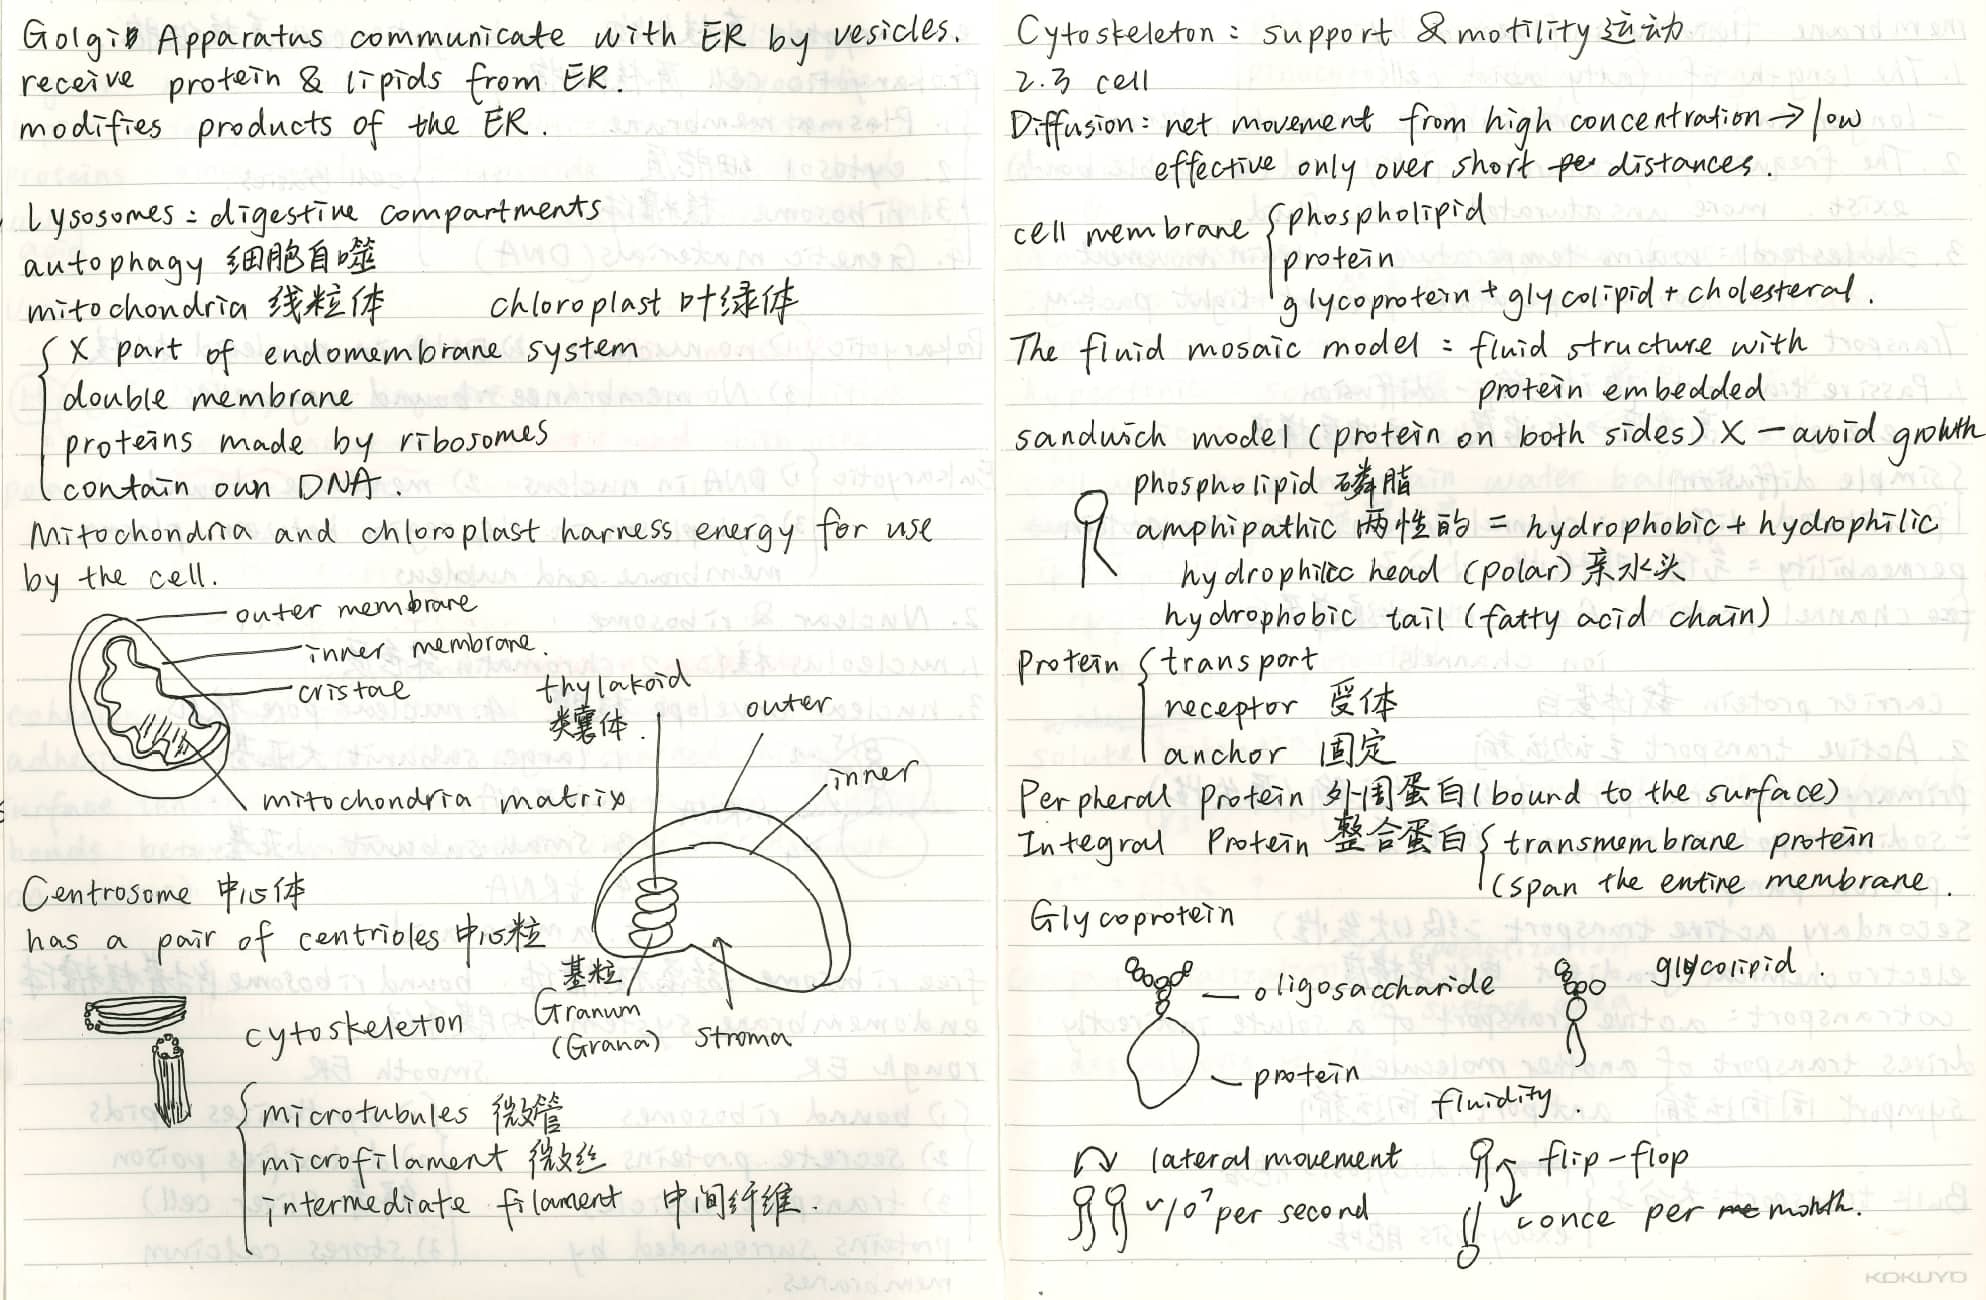 Golgi Apparatus communicate with ER by vesicles.
receive protein & lipids from ER.
modifies products of the ER.
Lysosomes: digestive compartments
autophagy 细胞自噬
mitochondria 线粒体 chloroplast 叶绿体
X part of endomembrane system
double membrane
proteins made by ribosomes
contain own DNA.
Mitochondria and chloroplast harness energy for use
by the cell.
outer membrane
inner membrane.
cristae
mitochondria matrix
thylakoid
类囊体.
outer
inner
基粒
Granum
(Grana)
stroma
Centrosome 中心体
has a pair of centrioles 中心粒
cytoskeleton
microtubules 微管
microfilament 微丝
intermediate filament 中间纤维.
Cytoskeleton: support & motility 运动
2.3 cell
Diffusion: net movement from high concentration → low
effective only over short distances.
cell membrane phospholipid
protein
glycoprotein + glycolipid + cholesteral.
The fluid mosaic model: fluid structure with
protein embedded
sandwich model (protein on both sides) X — avoid growth
phospholipid 磷脂
amphipathic 两性的 = hydrophobic + hydrophilic
hydrophilic head (polar) 亲水头
hydrophobic tail (fatty acid chain)
Protein transport
receptor 受体
anchor 固定
Perpheral Protein 外周蛋白 (bound to the surface)
Integral Protein 整合蛋白 transmembrane protein
(span the entire membrane.
Glycoprotein
oligosaccharide
protein
glycolipid.
fluidity.
lateral movement
~10⁷ per second
flip-flop
~once per month.
KOKUYO